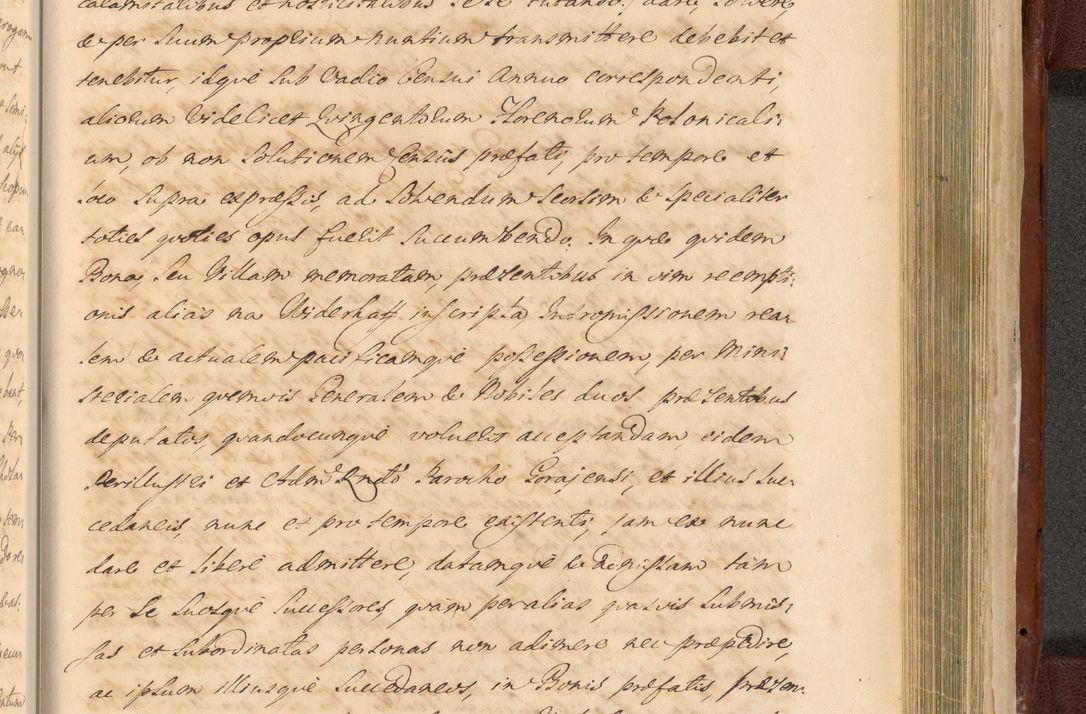 calamitatibus et hostilitatibus se se tutando, dare, solvere,
& per suum proprium nuntium transmittere debebit et
tenebitur, idquè sub vadio Censui Annuo correspondenti,
aliorum videlicet Quingentorum Florenorum Polonicali:
um, ob non solutionem Censûs præfati, pro tempore et
loco supra expressis, ad solvendum seorsim & specialiter
toties quoties opus fuerit succumbendo. In quæ quidem
Bona, seu Villam memoratam, præsentibus in vim reempti:
onis alias na Widerkaff inscripta, Intromissionem rea:
lem & actualem pacificamquè possessionem, per Mini:
sterialem quemvis Generalem & Nobiles duos præsentibus
deputatos, quandocunquè voluerit acceptandam, eidem
Perillustri et Adm. Rndo Parocho Gorajensi, et illius suc
cedaneis, nunc et pro tempore existenti, jam ex nunc
dare et liberè admittere, datamquè & admissam tam
per se suosquè successores, quam per alias quasvis submis:
sas et subordinatas personas non adimere nec præpedire,
ac ipsum illiusquè succedaneos, in Bonis præfatis, præsen: